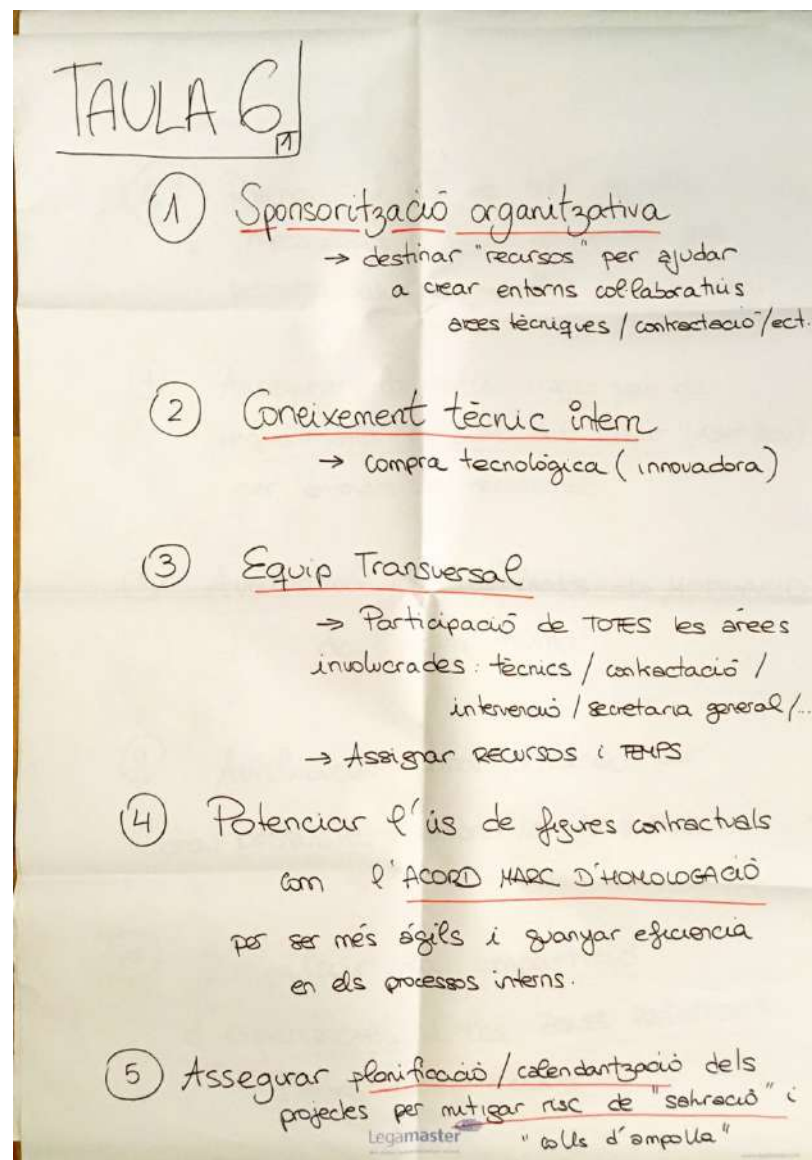 TAULA 6
1
① Sponsorització organitzativa
→ destinar "recursos" per ajudar
a crear entorns col·laboratius
àrees tècniques / contractació / ect.
② Coneixement tècnic intern
→ compra tecnològica (innovadora)
③ Equip Transversal
→ Participació de TOTES les àrees
involucrades: tècnics / contractació /
intervenció / secretaria general /...
→ Assignar RECURSOS i TEMPS
④ Potenciar l'ús de figures contractuals
com l'ACORD MARC D'HOMOLOGACIÓ
per ser més àgils i guanyar eficiencia
en els processos interns.
⑤ Assegurar planificació / calendarització dels
projectes per mitigar risc de "saturació" i
"colls d'ampolla"
Legamaster